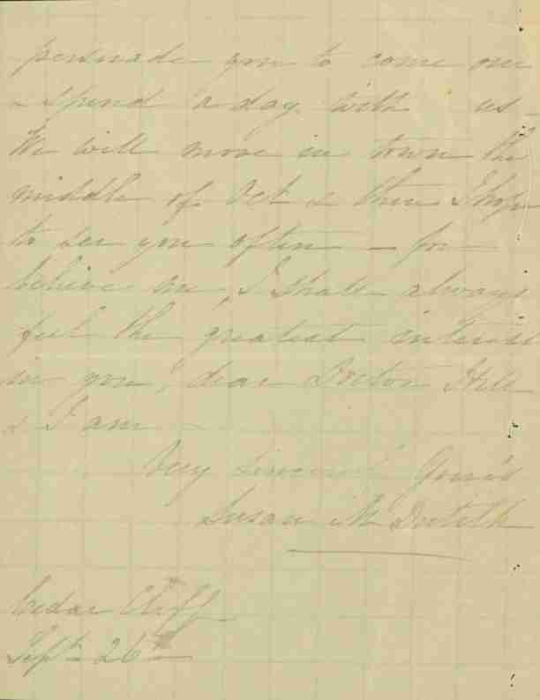 persuade you to come out
& spend a day with us -
We will move in town the
middle of Oct & then I hope
to see you often - for
believe me, I shall always
feel the greatest interest
in you, dear Doctor
& I am -
Very sincerely yours
Susan M
Cedar Cliff
Sept 26th